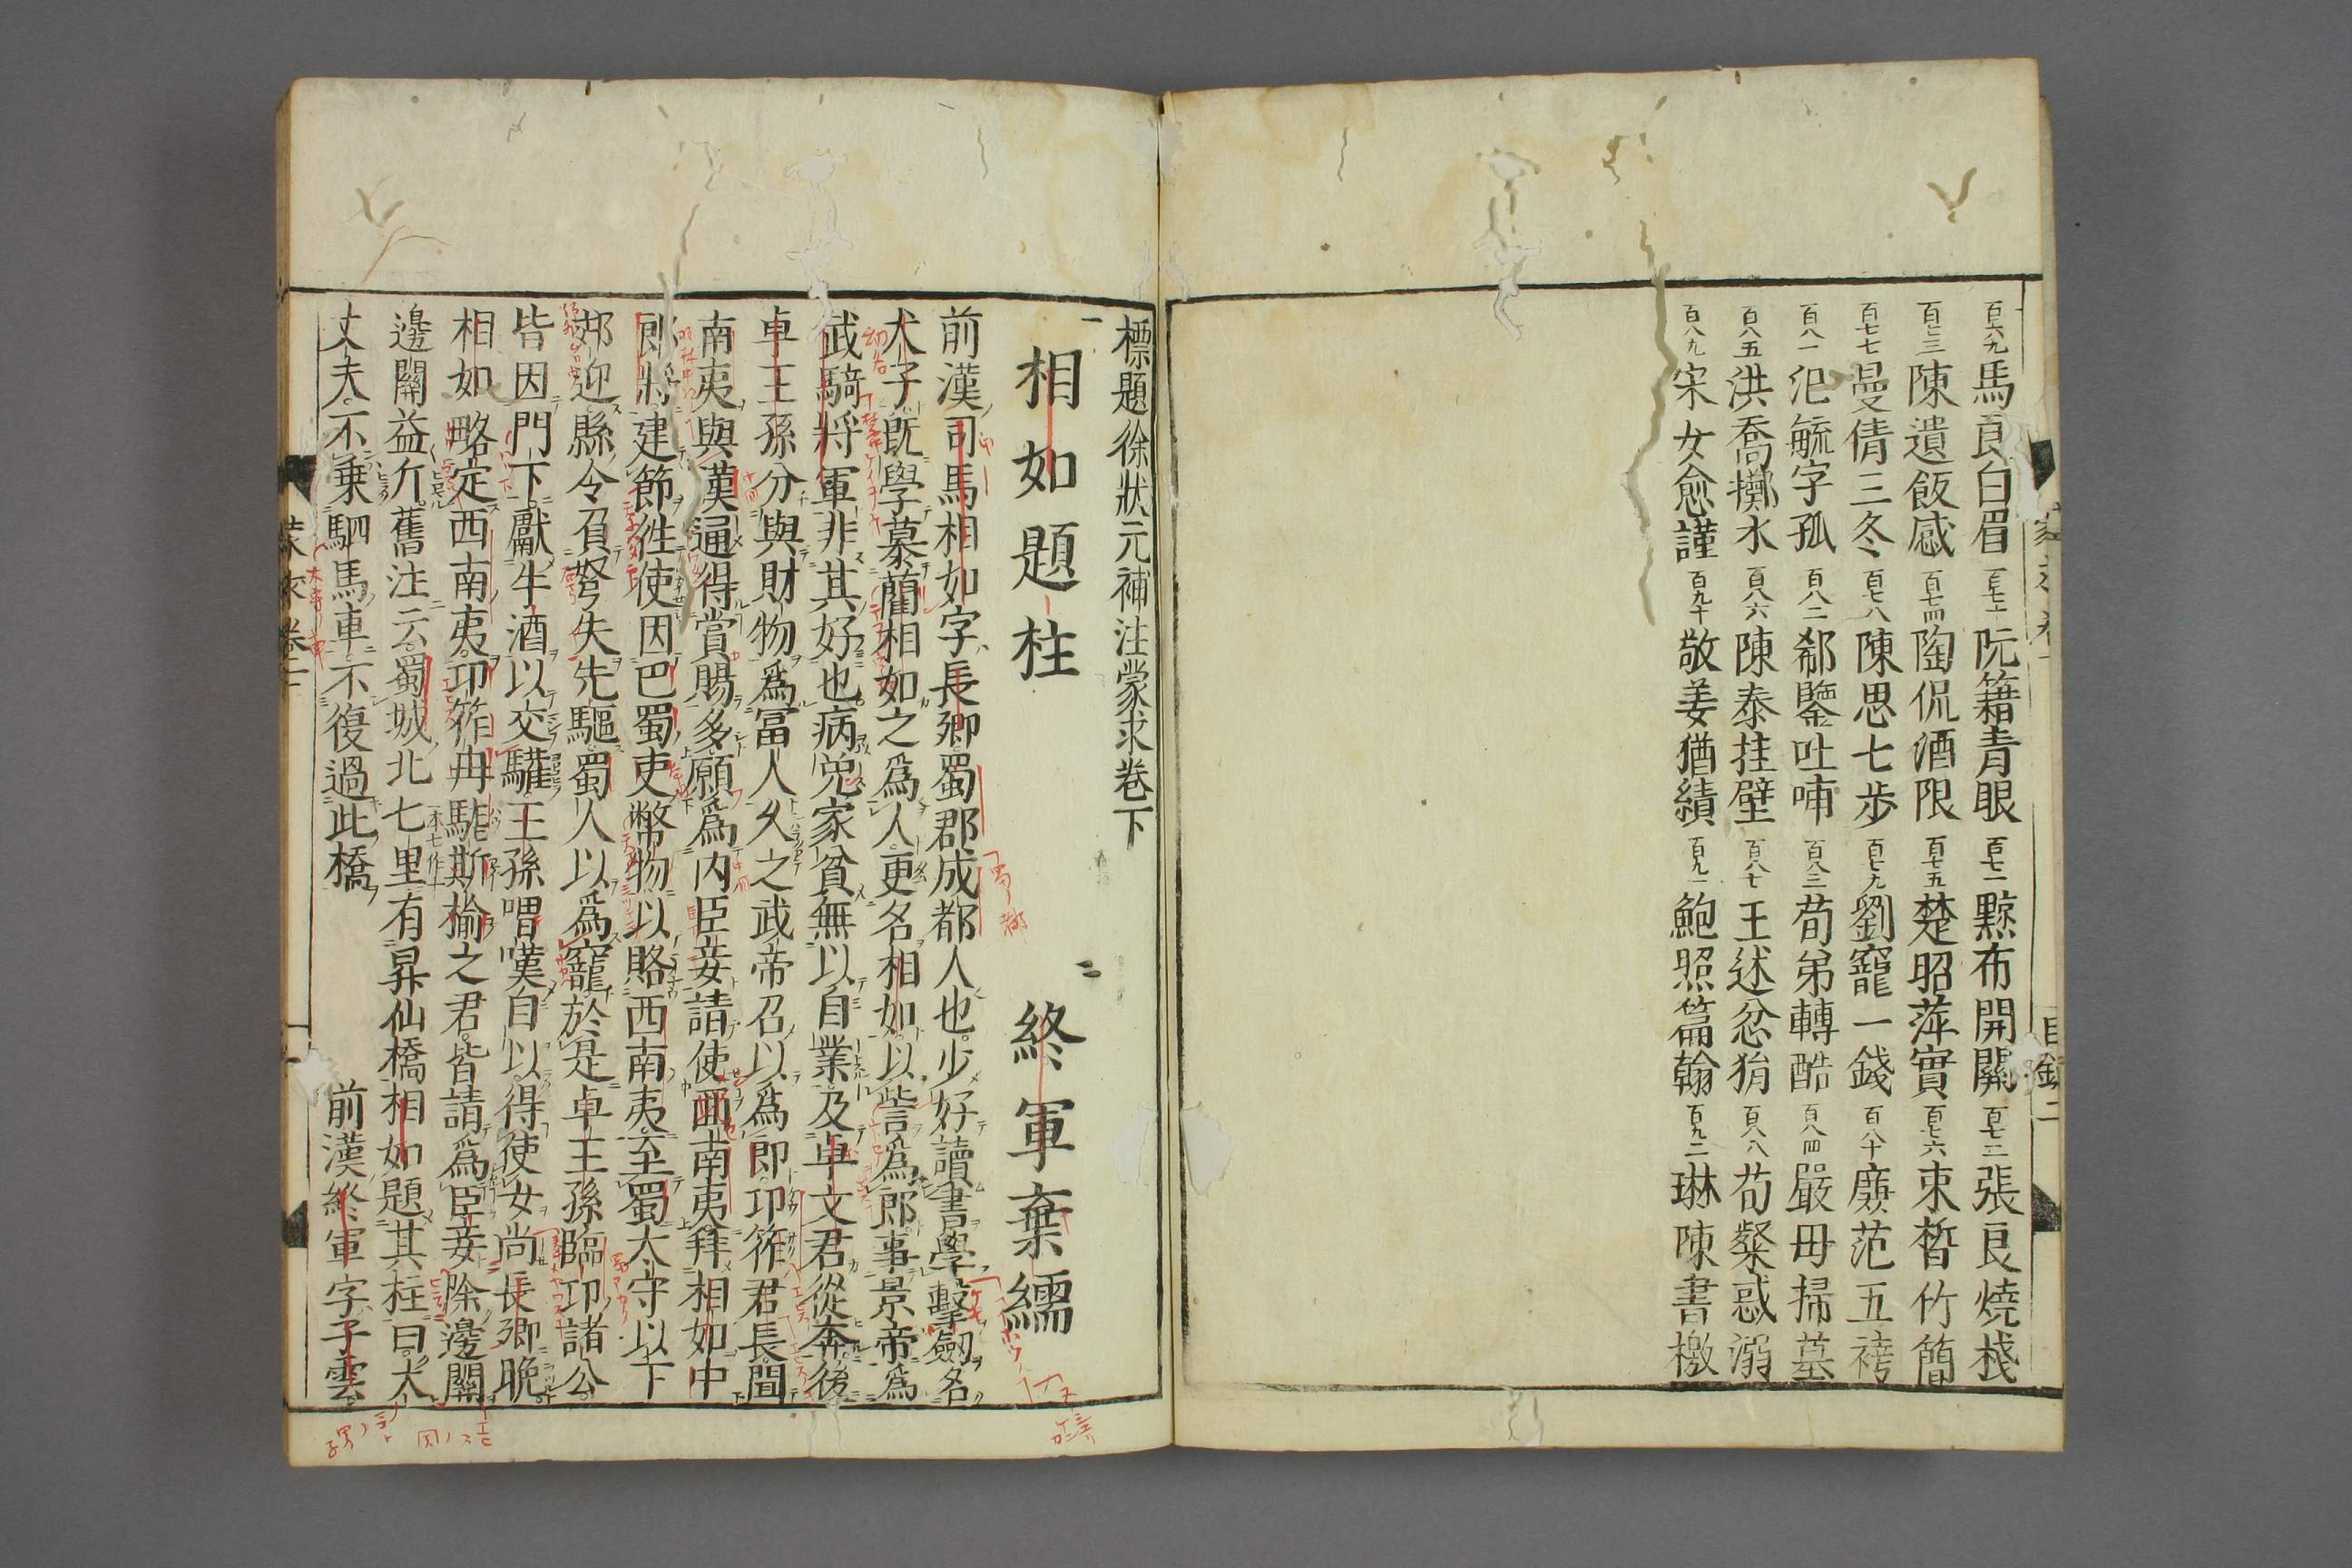 百六九 馬良白眉 百七十 阮籍青眼 百七一 黥布開關 百七二 張良燒棧
百七三 陳遺飯感 百七四 陶侃酒限 百七五 楚昭萍實 百七六 束皙竹簡
百七七 曼倩三冬 百七八 陳思七步 百七九 劉寵一錢 百八十 廉范五袴
百八一 氾毓字孤 百八二 郗鑒吐哺 百八三 荀弟轉酷 百八四 嚴母掃墓
百八五 洪喬擲水 百八六 陳泰挂壁 百八七 王述忿狷 百八八 荀粲惑溺
百八九 宋女愈謹 百九十 敬姜猶績 百九一 鮑照篇翰 百九二 琳陳書檄
標題徐狀元補注蒙求卷下
一 相如題柱 二 終軍棄繻
前漢司馬相如字長卿蜀郡成都人也少好讀書學擊劒名
犬子既學慕藺相如之爲人更名相如以訾爲郎事景帝爲
武騎將軍非其好也病免家貧無以自業及卓文君從奔後
卓王孫分與財物爲冨人久之武帝召以爲郎卭筰君長聞
南夷與漢通得賞賜多願爲内臣妾請使西南夷拜相如中
郎將建節徃使因巴蜀吏幣物以賂西南夷至蜀太守以下
郊迎縣令負弩矢先驅蜀人以爲寵於是卓王孫臨卭諸公
皆因門下獻牛酒以交驩王孫喟嘆自以得使女尚長卿晩
相如略定西南夷卭筰冉駹斯榆之君皆請爲臣妾除邊關
邊關益斥舊注云蜀城北七里有昇仙橋相如題其柱曰大
丈夫不乗駟馬車不復過此橋 前漢終軍字子雲